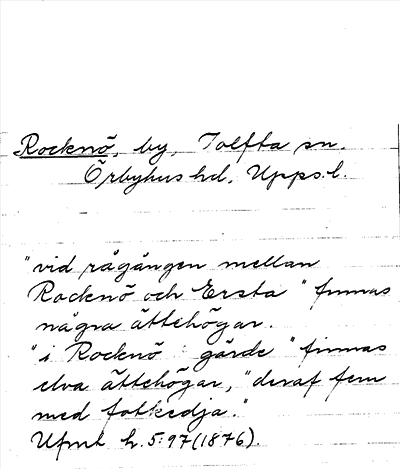 Rocknö, by, Tolfta sn.
Örbyhus hd, Upps.l.
"vid rågången mellan
Rocknö och Ersta" finnas
några ättehögar.
"i Rocknö gärde" finnas
elva ättehögar, "deraf fem
med fotkedja."
Ufmt h.5:97(1876).